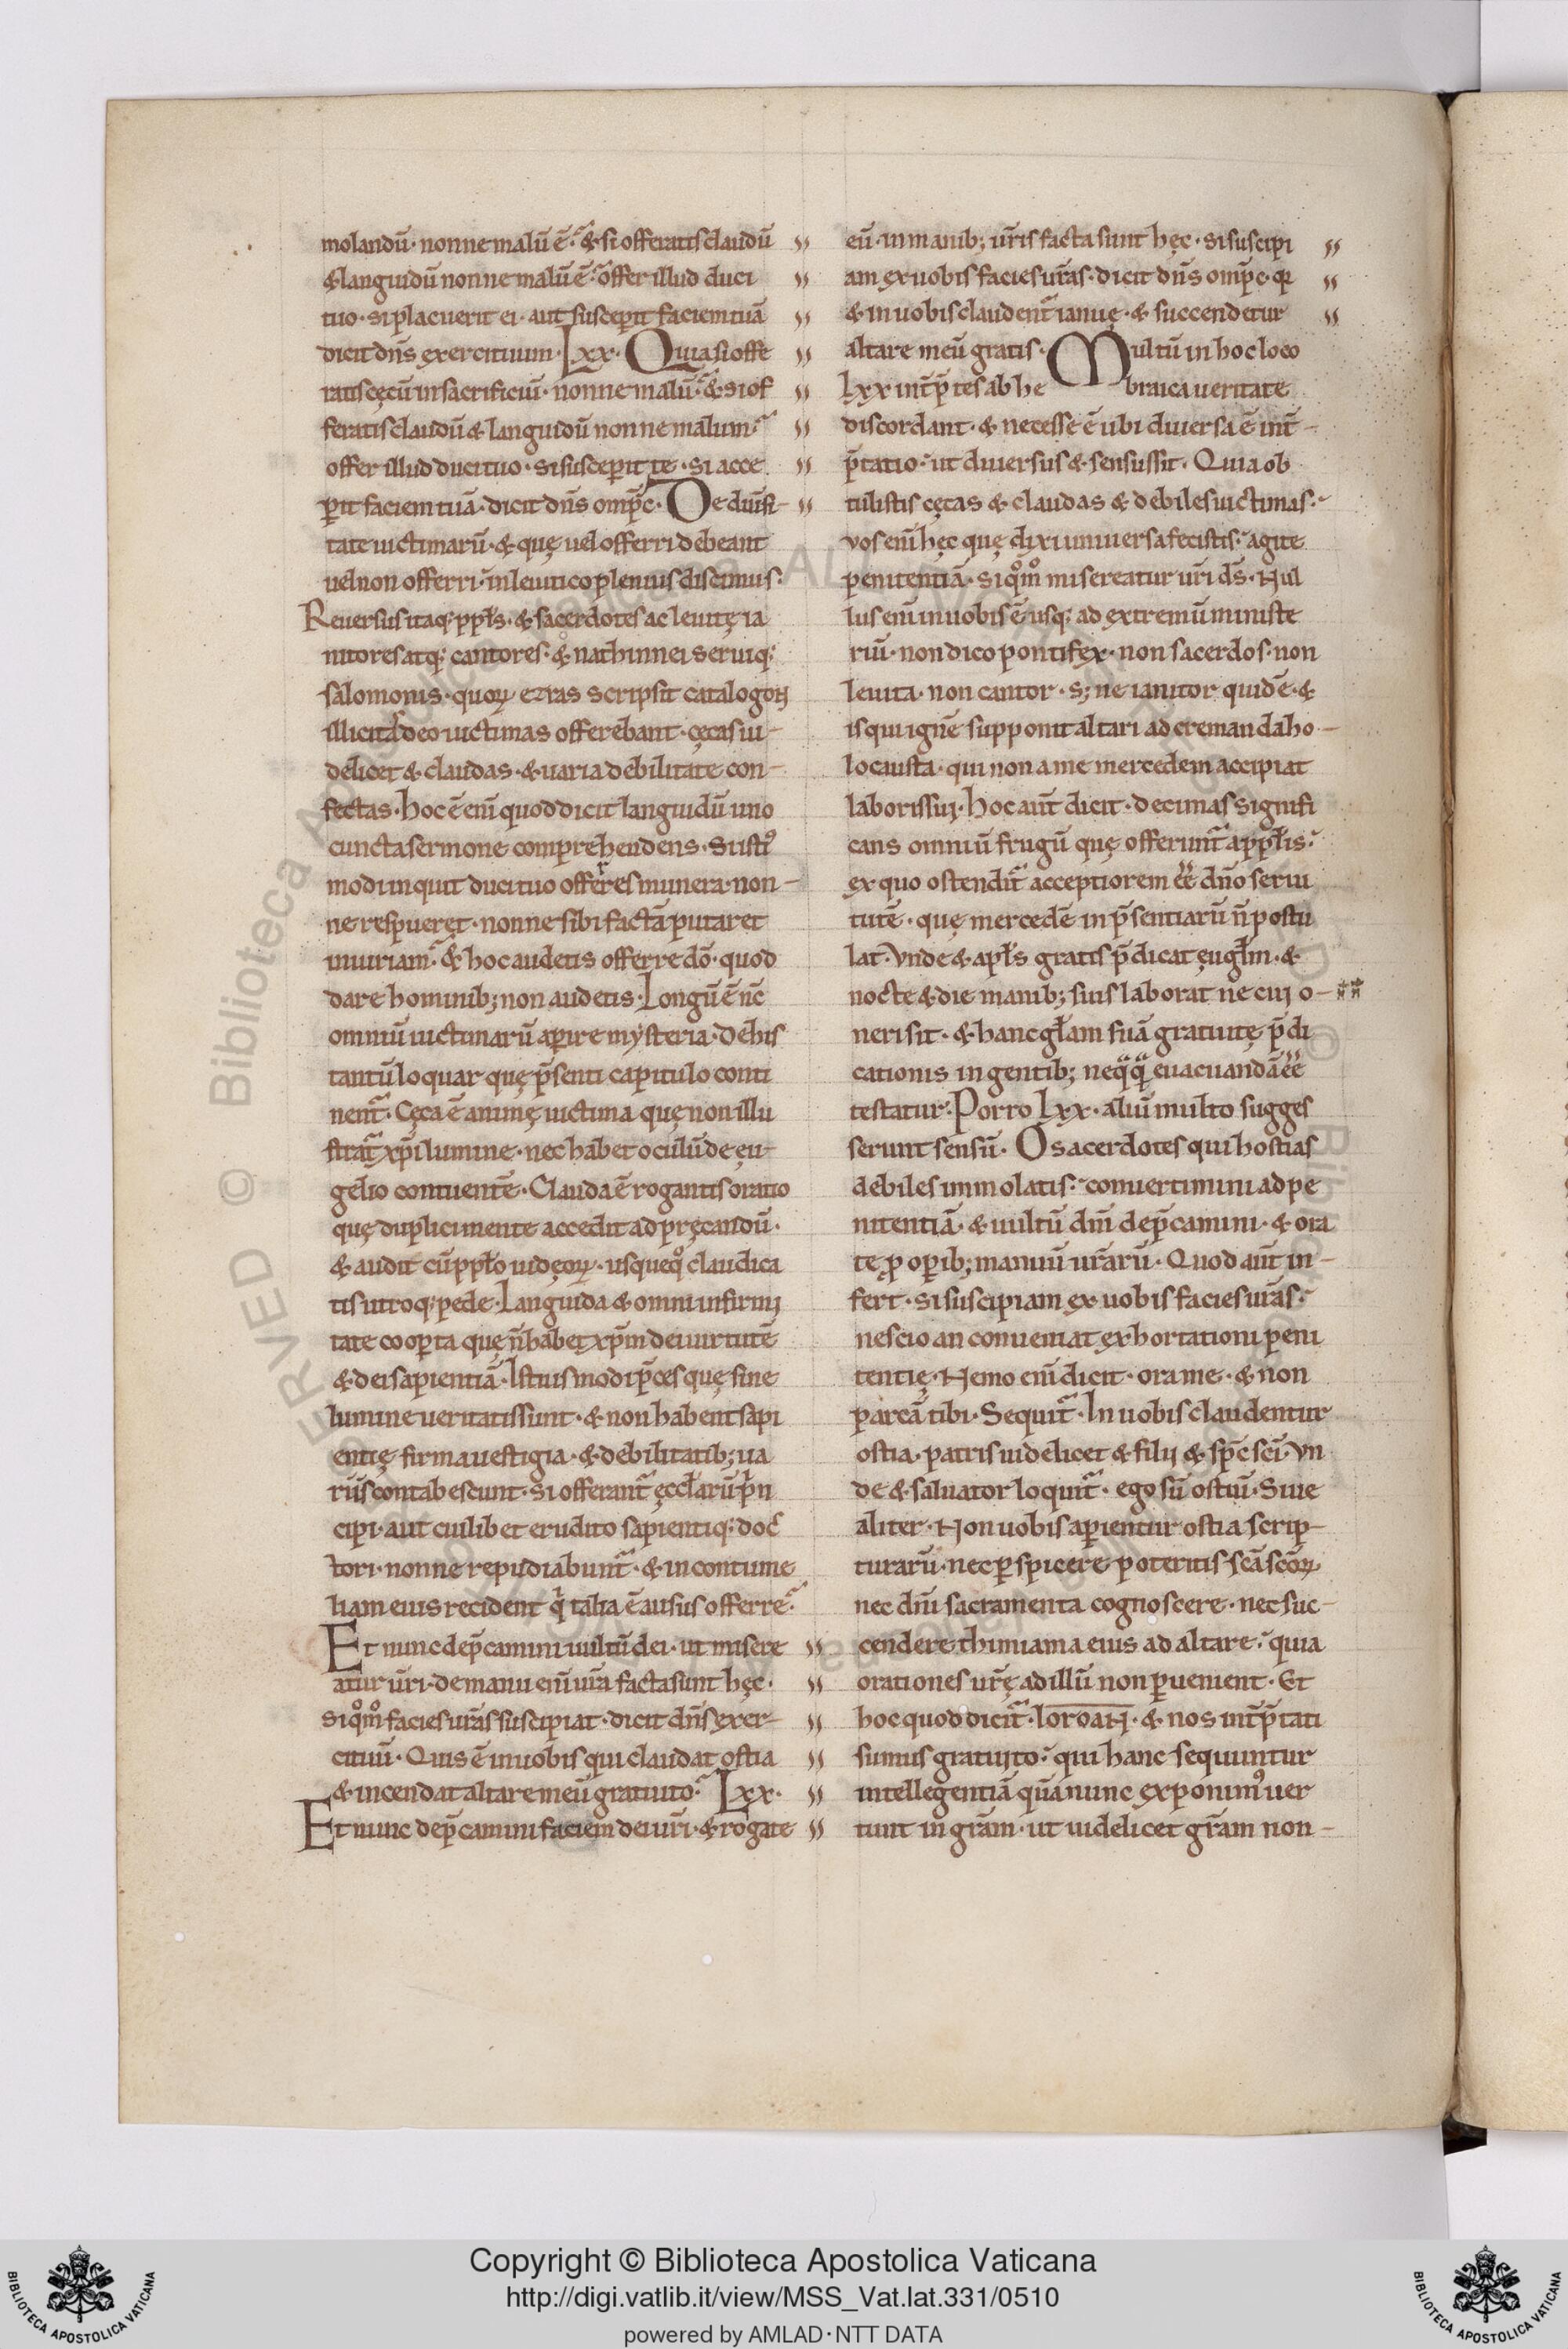 molandũ· nonne malũ ẽ· & si offeratis claudũ
& languidũ nonne malũ ẽ· offer illud duci
tuo· si placuerit ei· aut susceꝑit faciem tuã
dicit dñs exercituum· Lxx· Quia si offe
ratis cęcũ in sacrificiũ· nonne malũ· & si of
feratis claudũ & languidũ nonne malum·
offer illud duci tuo· si susceꝑit te· si acce
ꝑit faciem tuã· dicit dñs omp̃c· De diũsi-
tate uictimarũ· & quę uel offerri debeant
uel non offerri· in leuitico plenius discimus·
Reuersus itaq; ppłs· & sacerdotes ac leuitę ia
nitores atq; cantores· & nathinnei seruiq;
salomonis· quoꝝ ezras scripsit catalogon
illicitas deo uictimas offerebant· cęcas ui-
delicet & claudas· & uaria debilitate con-
fectas· hoc ẽ eni᷃ quod dicit languidũ uno
cuncta sermone comprehendens· Si isti᷒
modi inquit duci tuo offerres munera· non-
ne respueret· nonne sibi factã putaret
iniuriam· & hoc audetis offerre dõ· quod
dare hominib; non audetis· Longũ ẽ nc̃
omniũ uictimarũ aꝑire mysteria· De his
tantũ loquar quę p̃senti capitulo conti
nent᷑· Cęca ẽ animę uictima quę non illu
strat᷑ xp̃i lumine· nec habet oculũ de eu-
gelio contuentẽ· Clauda ẽ rogantis oratio
quę duplici mente accedit ad pręcandũ·
& audit cũ ppło iudęoꝝ· usquequo claudica
tis utroq; pede· Languida & omni infirmi
tate cooꝑta quę ñ habet xp̃m dei uirtutẽ
& dei sapientiã· Istius modi p̃ces quę sine
lumine ueritatis sunt· & non habent sapi
entię firma uestigia· & debilitatib; ua
riis contabescunt· si offerant᷑ ęccłarũ prin
cipi· aut cuilibet erudito sapientiq; doc
tori· nonne repudiabunt᷑· & in contume
liam eius recident qͥ talia ẽ ausus offerre·
Et nunc dep̃camini uultũ dei· ut misere
atur ũri· de manu eni᷃ ũra facta sunt hęc·
si qͦmͦ facies ũras suscipiat· dicit dñs exer-
cituũ· Quis ẽ in uobis qui claudat ostia
& incendat altare meũ gratuito· Lxx·
Et nunc dep̃camini faciem dei ũri· & rogate
eũ· in manib; ũris facta sunt hęc· si suscipi
am ex uobis facies ũras· dicit dñs omp̃c· qꝛ
& in uobis claudent᷑ ianuę· & succendetur
altare meũ gratis· Multũ in hoc loco
Lxx int̃p̃tes ab hebraica ueritate
discordant· & necesse ẽ ubi diuersa ẽ int̃-
p̃tatio· ut diuersus & sensus sit· Quia ob
tulistis cęcas & claudas & debiles uictimas·
vos eni᷃ hęc quę dixi uniuersa fecistis· agite
penitentiã· si qͦmͦ misereatur ũri d̃s· Nul
lus eni᷃ in uobis ẽ usq; ad extremũ ministe
riũ· non dico pontifex· non sacerdos· non
leuita· non cantor· s; ne ianitor quidẽ· &
is qui ignẽ supponit altari ad cremanda ho-
locausta· qui non a me mercedem accipiat
laboris sui· hoc aũt dicit· decimas signifi
cans omniũ frugũ quę offerunt᷑ a ppłis·
ex quo ostendit᷑ acceptiorem ẽẽ dño serui
tutẽ· quę mercedẽ in p̃sentiarũ ñ postu
lat· Vnde & apłs gratis p̃dicat eugłm· &
nocte & die manib; suis laborat ne cui o-
neri sit· & hanc głam suã gratuitę p̃di
cationis in gentib; neqͣqͣ euacuandã ẽẽ
testatur· Porro Lxx· aliũ multo sugges
serunt sensũ· O sacerdotes qui hostias
debiles immolatis· conuertimini ad pe
nitentiã· & uultũ dñi dep̃camini· & ora
te ꝓ oꝑib; manuũ ũrarũ· Quod aũt in-
fert· si suscipiam ex uobis facies ũras·
nescio an conueniat exhortationi peni
tentię· Nemo eni᷃ dicit· ora me· & non
parcã tibi· Sequit᷑· In uobis claudentur
ostia· patris uidelicet & filij & sp̃c sci᷃· Vn
de & saluator loquit᷑· ego sũ ostiũ· Siue
aliter· Non uobis aꝑientur ostia scrip-
turarũ· nec ꝑspicere poteritis scã scõꝝ
nec dñi sacramenta cognoscere· nec suc-
cendere thimiama eius ad altare· quia
orationes ur̃ę ad illũ non ꝑuenient· Et
hoc quod dicit᷑· IOROAN· & nos int̃p̃tati
sumus gratuito· qui hanc sequuntur
intellegentiã quã nunc exponim᷒ uer
tunt in gr̃am· ut uidelicet gr̃am non-
Copyright © Biblioteca Apostolica Vaticana
http://digi.vatlib.it/view/MSS_Vat.lat.331/0510
powered by AMLAD·NTT DATA
BIBLIOTECA APOSTOLICA VATICANA
BIBLIOTECA APOSTOLICA VATICANA